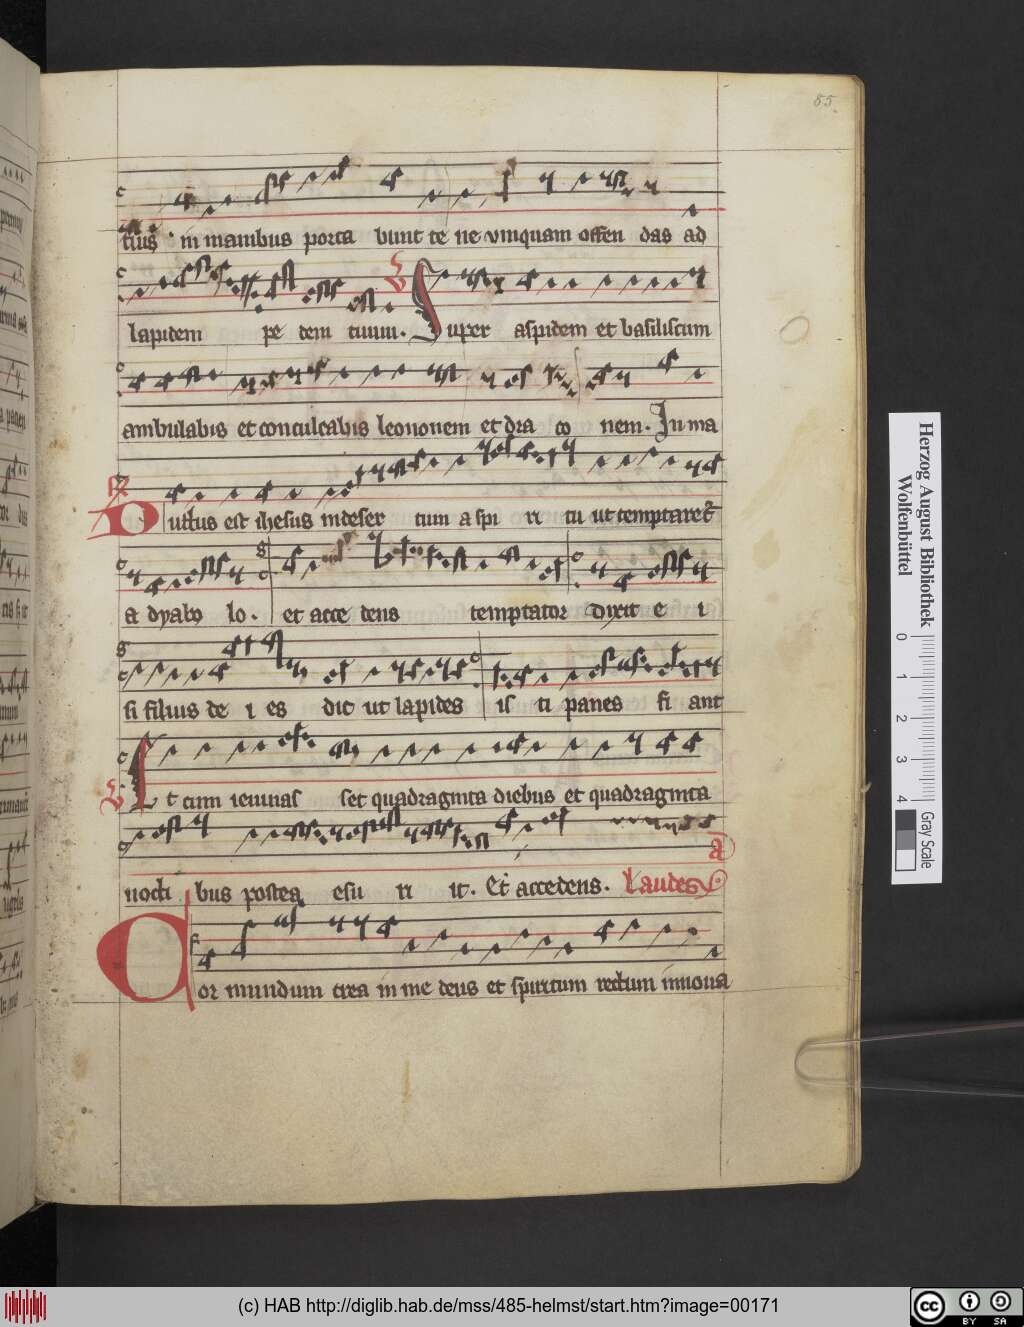 85
tuis in manibus porta bunt te ne vmquam offen das ad
lapidem pe dem tuum. Super aspidem et basiliscum
ambulabis et conculcabis leononem et dra co nem. In ma
Ductus est ihesus in deser tum a spi ri tu ut temptaret
a dyabo lo. et acce dens temptator dixit e i
si filius de i es dic ut lapides is ti panes fi ant
Et cum ieiunas set quadraginta diebus et quadraginta
nocti bus postea esu ri it. Et accedens. Laudes a
Cor mundum crea in me deus et spiritum rectum innoua
Herzog August Bibliothek
Wolfenbüttel
0 1 2 3 4 Gray Scale
(c) HAB http://diglib.hab.de/mss/485-helmst/start.htm?image=00171
cc BY SA